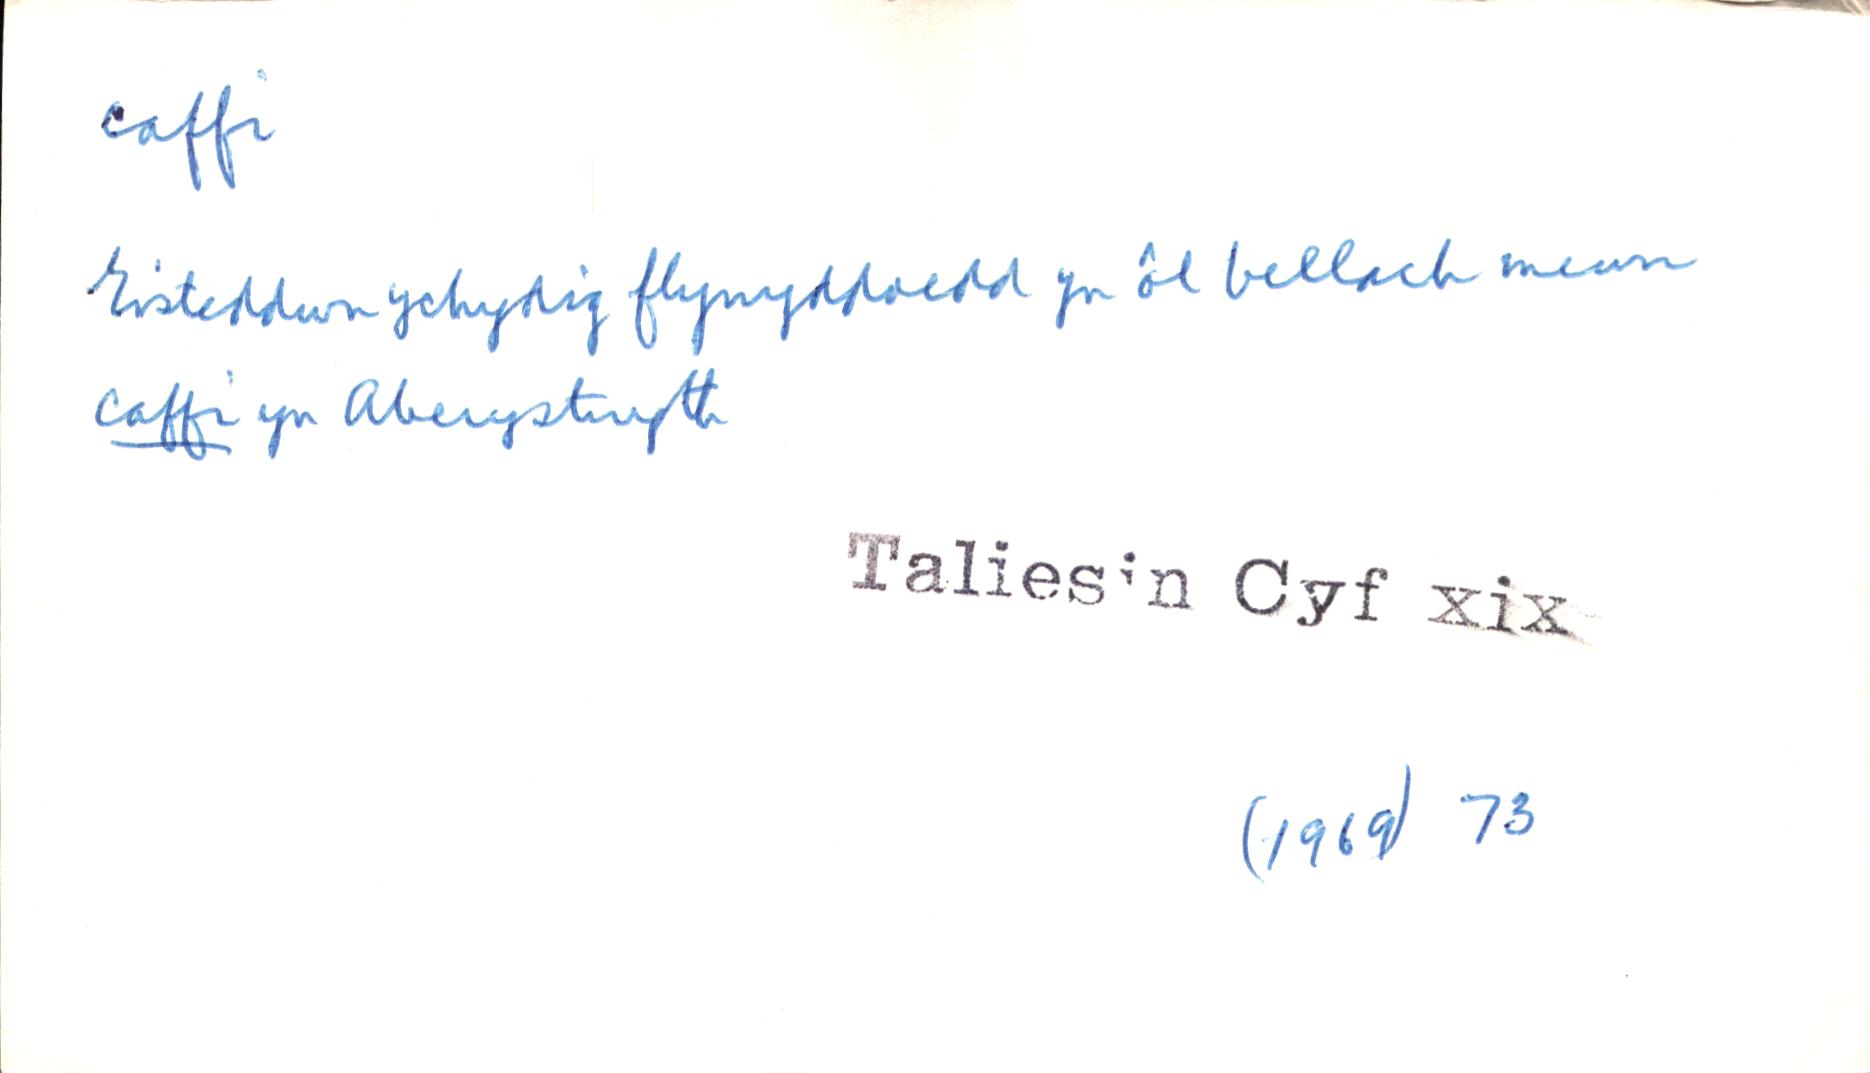 caffi
Eisteddwn ychydig flynyddoedd yn ôl bellach mewn
caffi yn Aberystwyth
Taliesin Cyf xix
(1969) 73